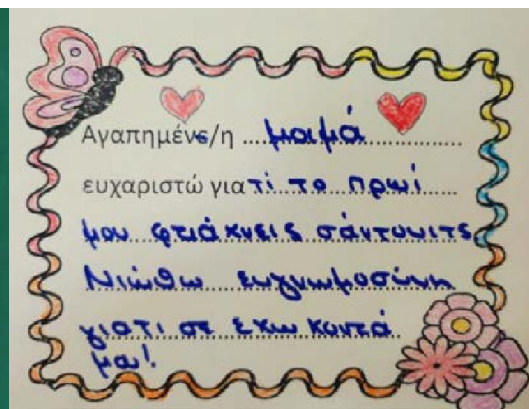 Αγαπημένε/η ....μαμά....
ευχαριστώ για τί το πρωί
μου φτιάχνεις σάντουιτς
Νιώθω ευγνωμοσύνη
γιατι σε εχω κοντά
μα!